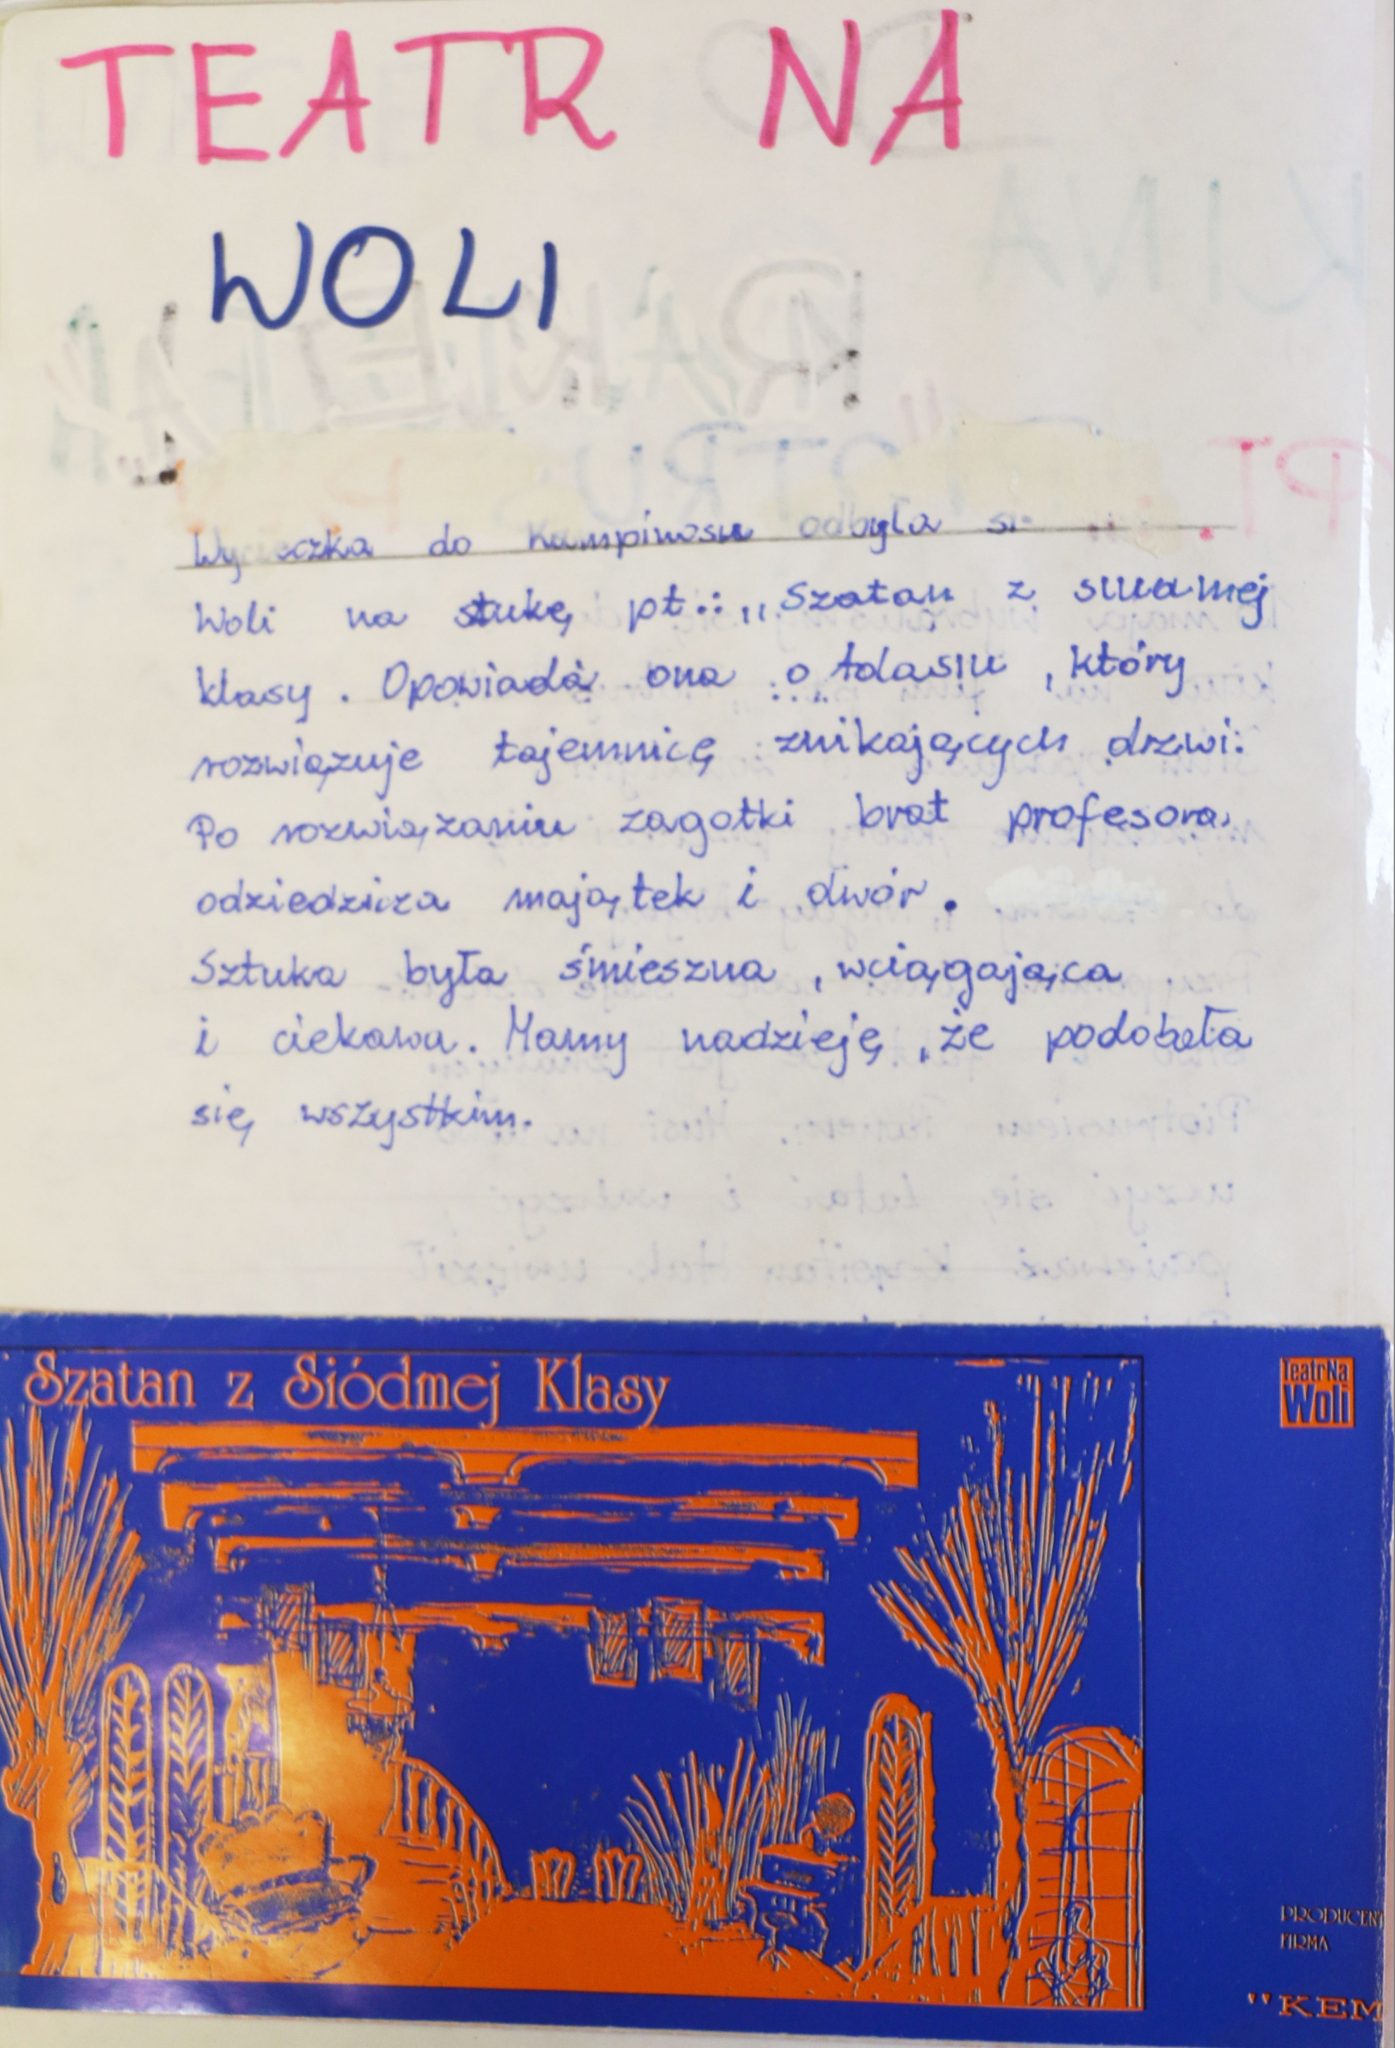 TEATR NA
WOLI
Wycieczka do Kampinosu odbyła si
Woli na stukę pt.: „Szatan z siudmej
klasy. Opowiada ona o Adasiu, który
rozwiązuje tajemnicę znikających drzwi.
Po rozwiązaniu zagatki brat profesora
odziedzicza majątek i dwór.
Sztuka była śmieszna, wciągająca
i ciekawa. Mamy nadzieję, że podobała
się wszystkim.
Szatan z Siódmej Klasy
TeatrNa
Woli
PRODUCENT
FIRMA
"KEM